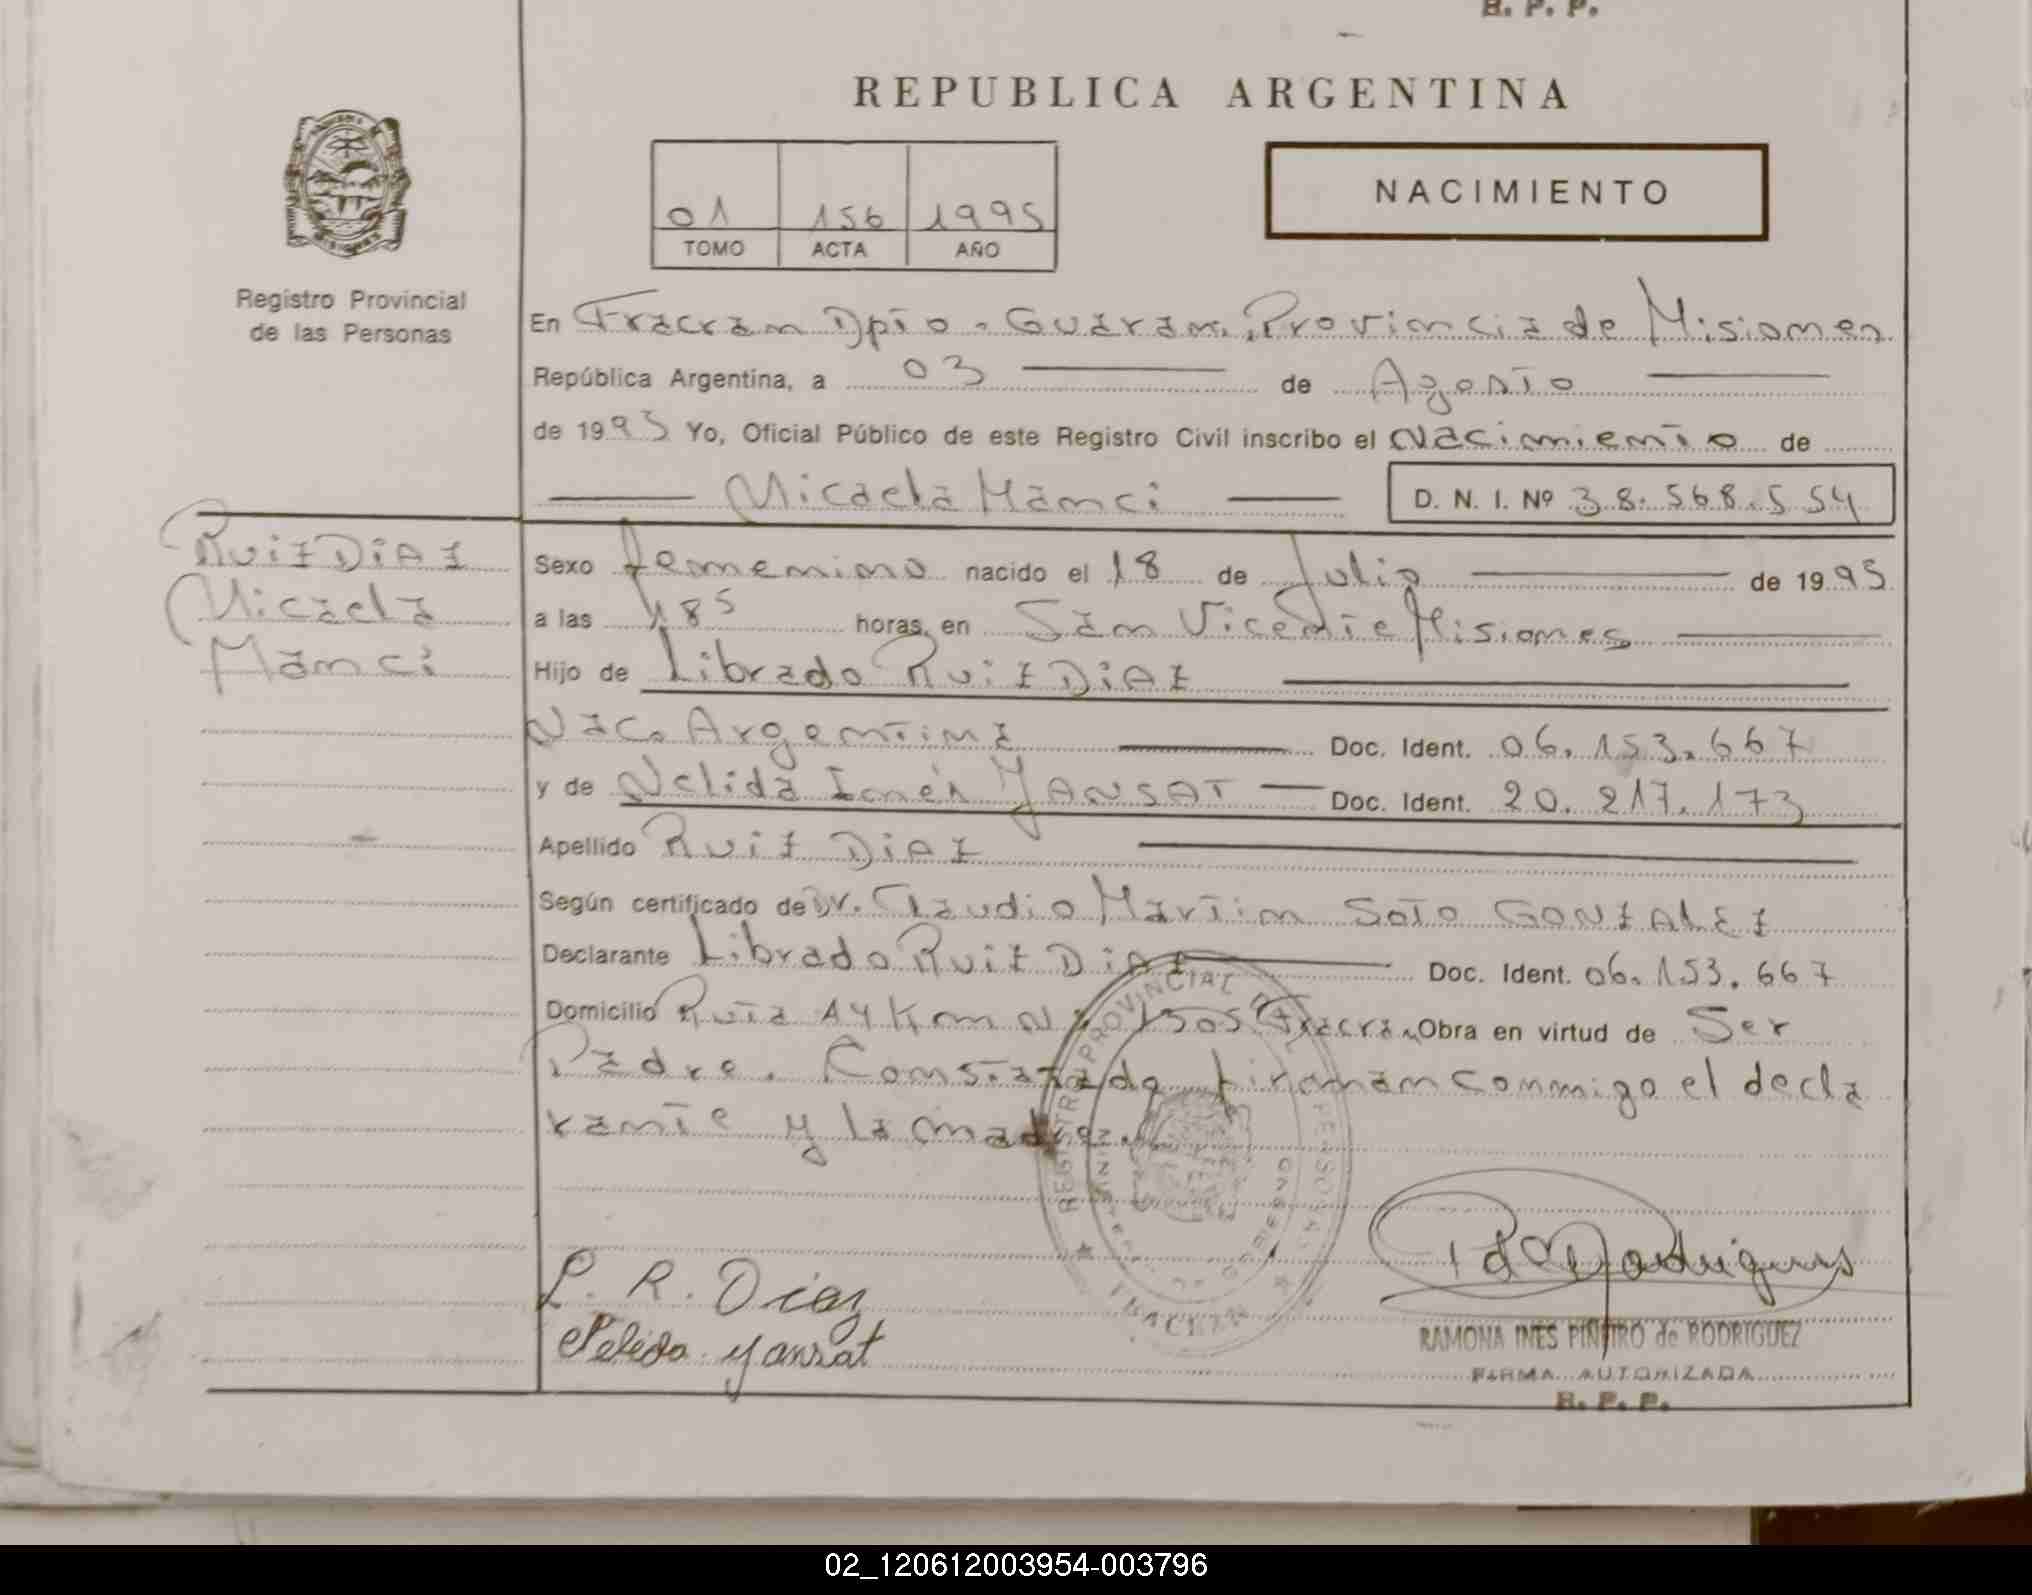 R. P. P.
REPUBLICA ARGENTINA
01 156 1995
TOMO ACTA AÑO
NACIMIENTO
Registro Provincial
de las Personas
En Fracran Dpto. Guarani, Provincia de Misiones
República Argentina, a 03 de Agosto
de 1995 Yo, Oficial Público de este Registro Civil inscribo el Nacimiento de
Micaela Manci D. N. I. Nº 38.568.554
Ruiz DiAz
Micaela
Manci
Sexo femenino nacido el 18 de Julio de 1995
a las horas, en San Vicente Misiones
Hijo de Librado Ruiz DiAz
Nac. Argentina Doc. Ident. 06.153.667
y de Nelida Inés YANSAT Doc. Ident. 20.217.173
Apellido Ruiz DiAz
Según certificado de Dr. Claudio Martin Soto GONZALEZ
Declarante Librado Ruiz DiAz Doc. Ident. 06.153.667
Domicilio Ruta 14 Km Nº Fracran Obra en virtud de Ser
Padre. Constatado firman conmigo el decla
rante y la madre.
REGISTRO PROVINCIAL DE LAS PERSONAS
MINISTERIO DE GOBIERNO
MISIONES
L. R. Diaz
Nelida Yansat
RAMONA INES PIÑEIRO de RODRIGUEZ
FIRMA AUTORIZADA
R. P. P.
02_120612003954-003796